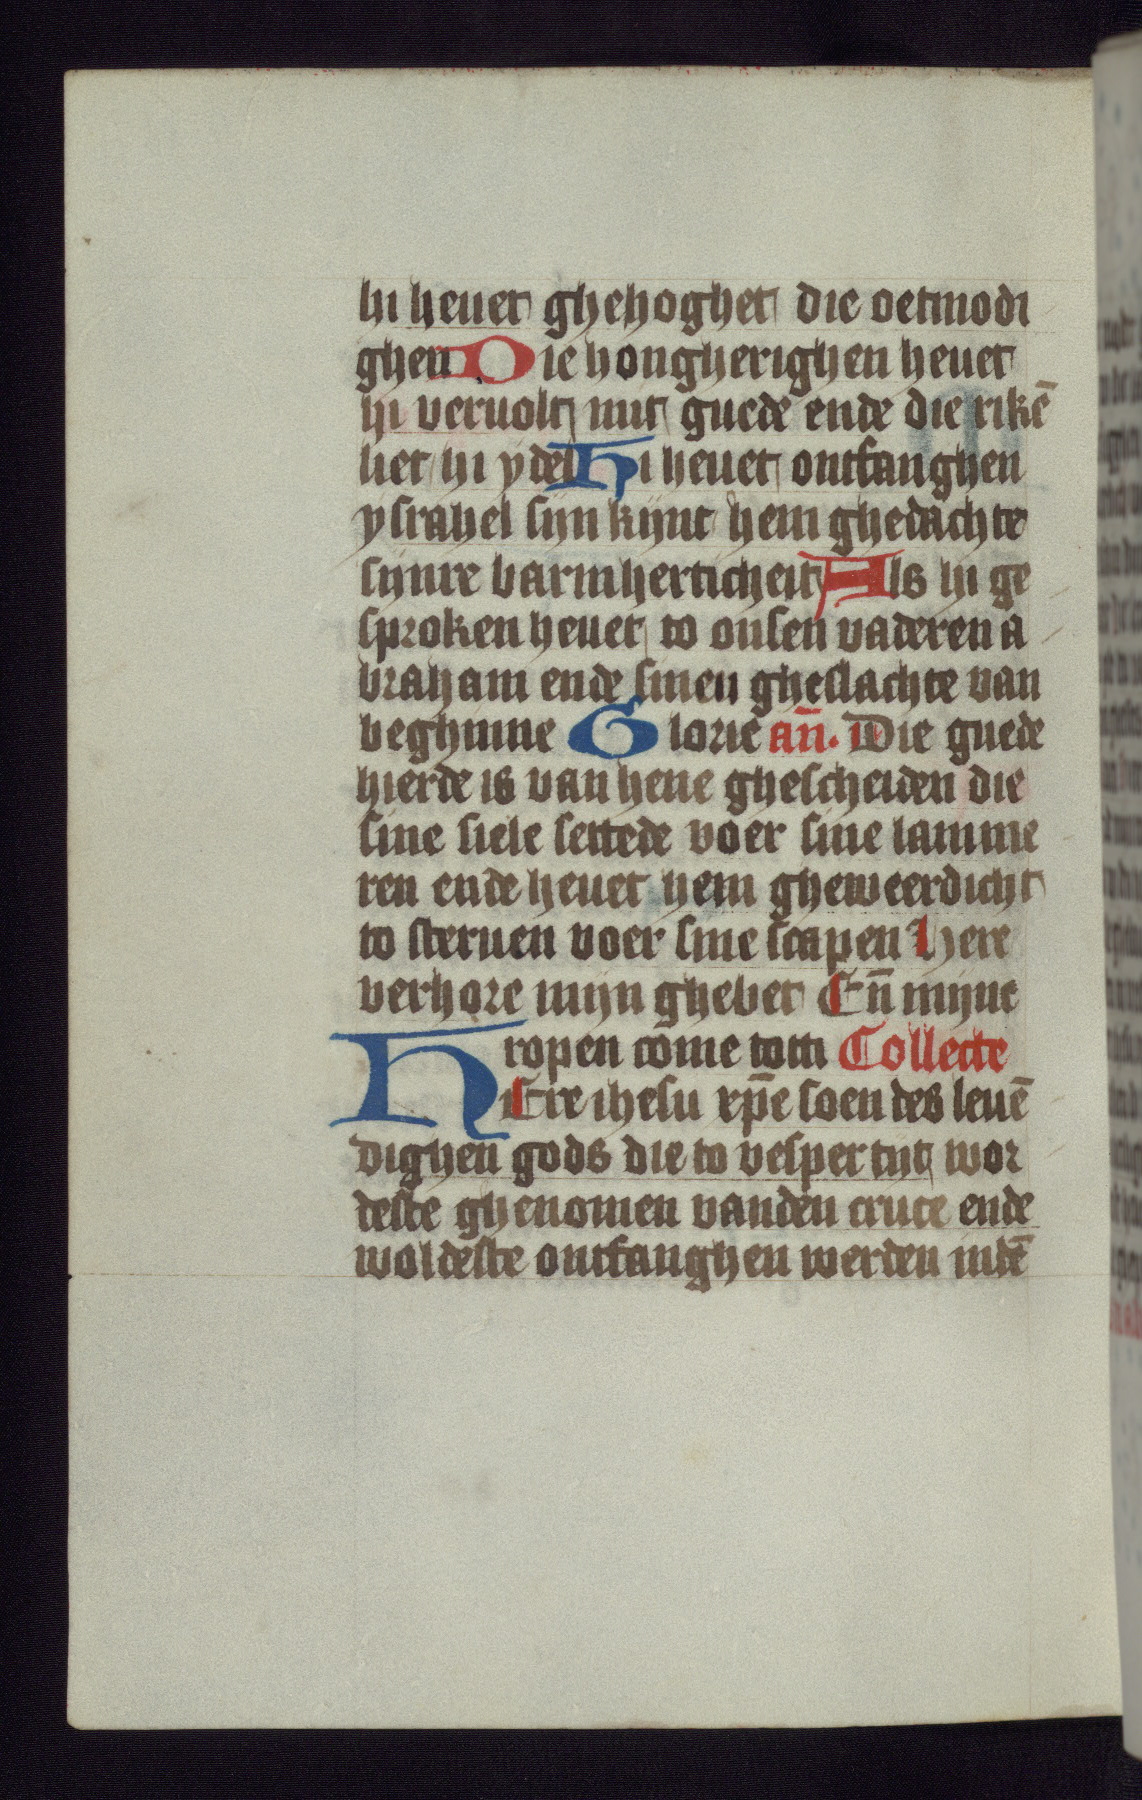 hi heuet ghehoghet die oetmodi
ghen Die hongherighen heuet
hi veruolt mit guede ende die rikē
liet hi ydel Hi heuet ontfanghen
ysrahel sijn kijnt hem ghedachte
sijnre barmherticheit Als hi ge
sproken heuet to onsen vaderen a
braham ende sinen gheslachte van
beghinne Glorie an̄. Die guede
hierde is van hene ghescheiden die
sine siele settede voer sine lamme
ren ende heuet hem gheweerdicht
to steruen voer sine scapen here
verhore mijn ghebet En̄ mijne
ropen come totti Collecte
HEre ihesu xp̄e soen des leuē
dighen gods die to vespertijt wor
deste ghenomen vanden cruce ende
woldeste ontfanghen werden indē